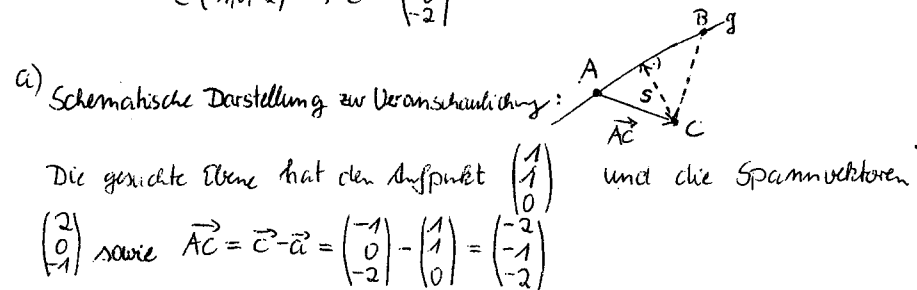 -2
B g
a) Schematische Darstellung zur Veranschaulichung: A s C
\vec{AC}
Die gesuchte Ebene hat den Aufpunkt \begin{pmatrix} 1 \\ 1 \\ 0 \end{pmatrix} und die Spannvektoren
\begin{pmatrix} 2 \\ 0 \\ -1 \end{pmatrix} sowie \vec{AC} = \vec{c} - \vec{a} = \begin{pmatrix} -1 \\ 0 \\ -2 \end{pmatrix} - \begin{pmatrix} 1 \\ 1 \\ 0 \end{pmatrix} = \begin{pmatrix} -2 \\ -1 \\ -2 \end{pmatrix}